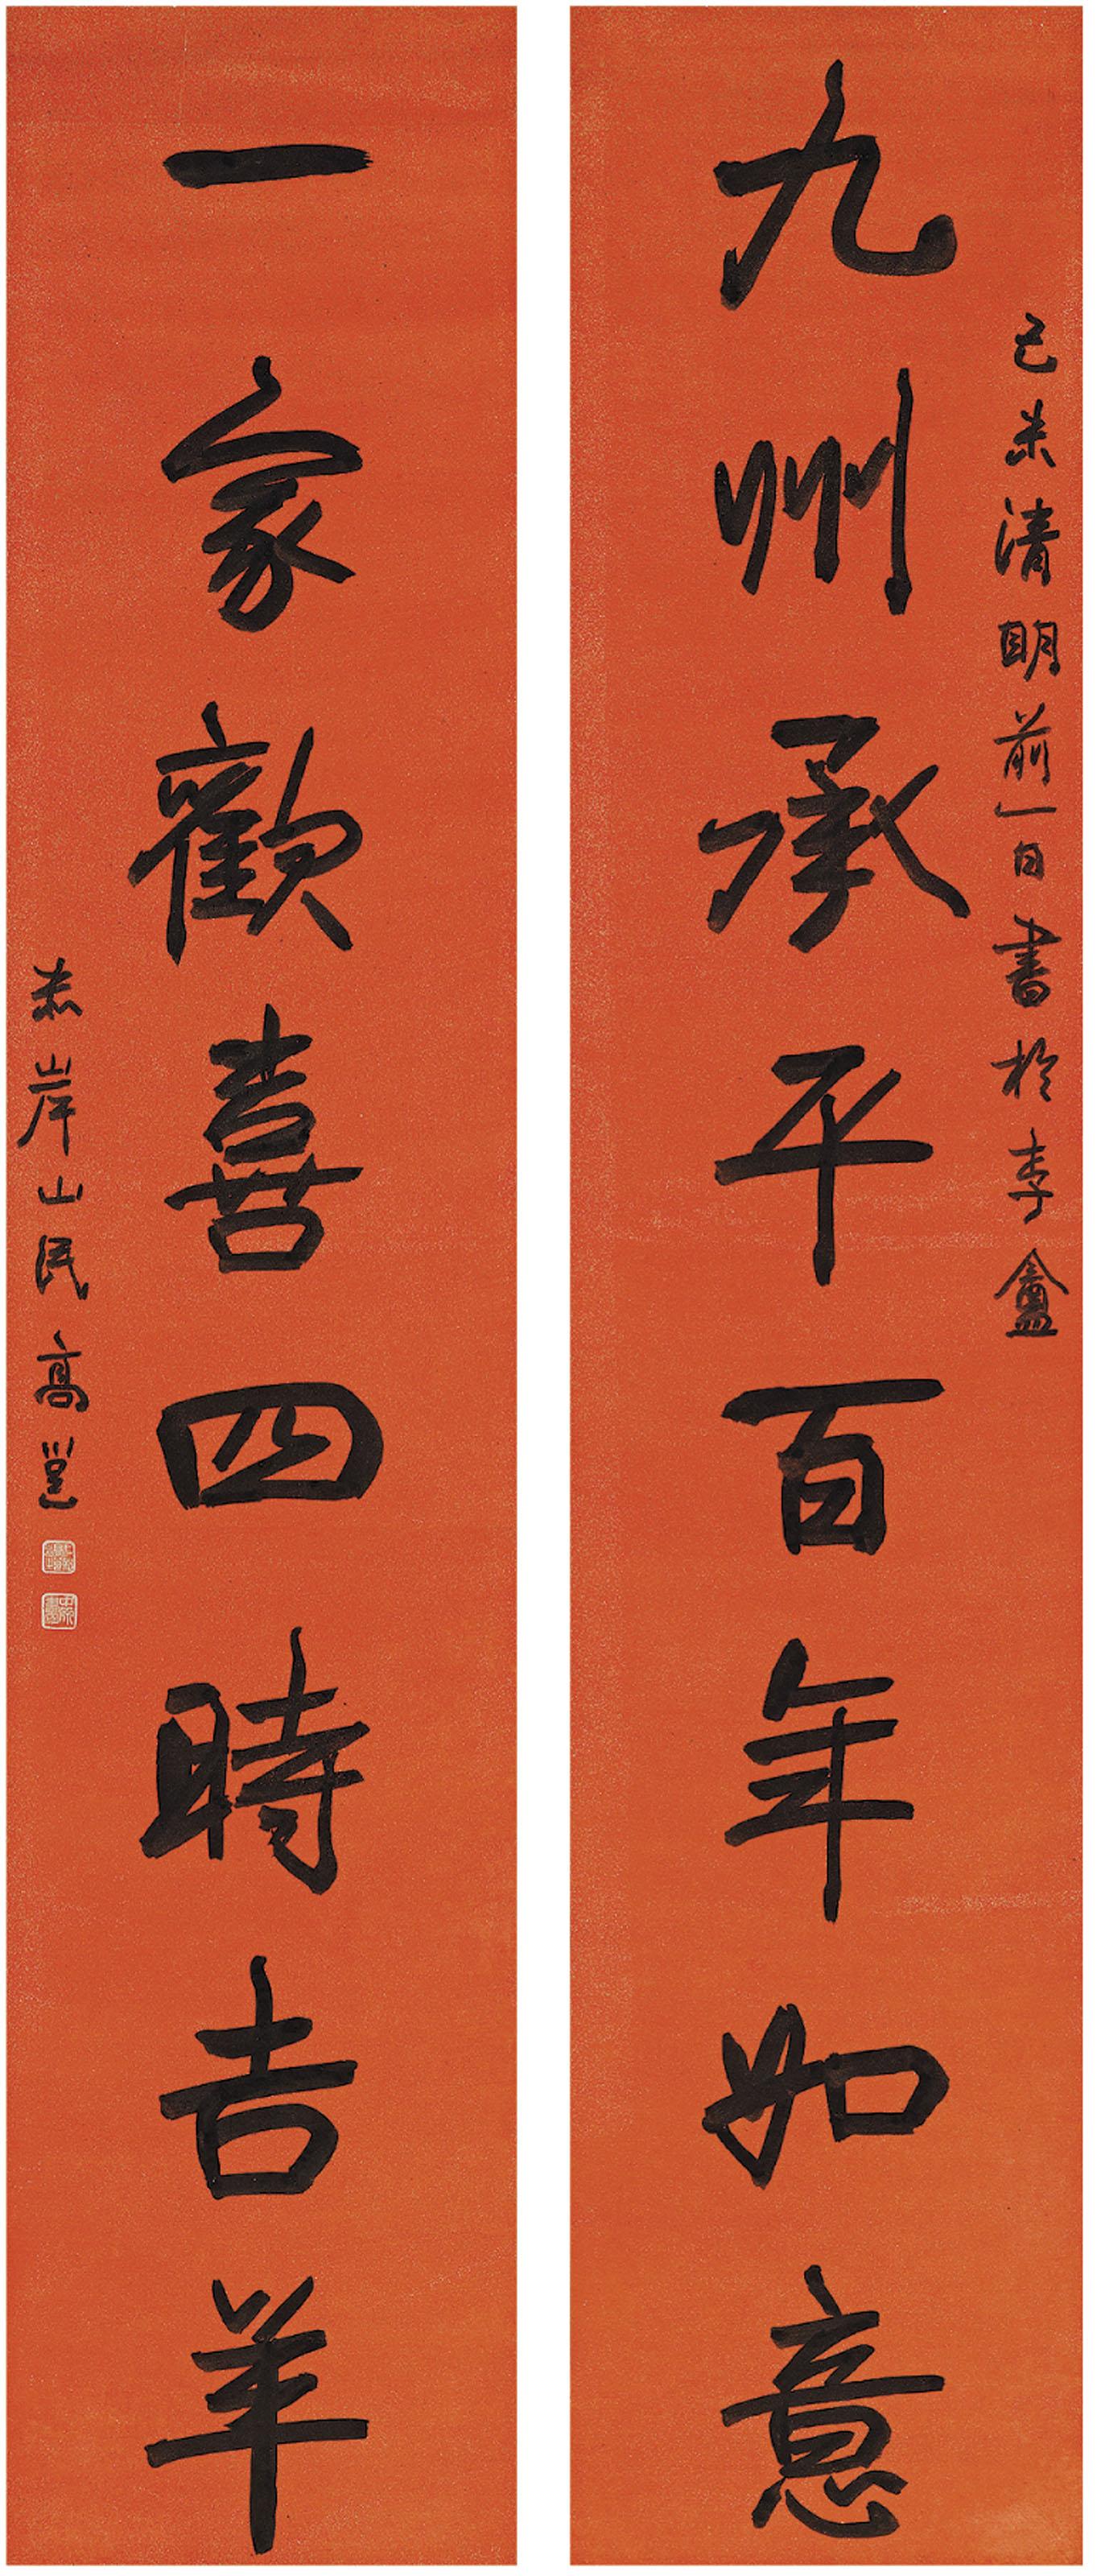 九州承平百年如意
己未清明前一日書於李盦
一家歡喜四時吉羊
赤岸山民高邕